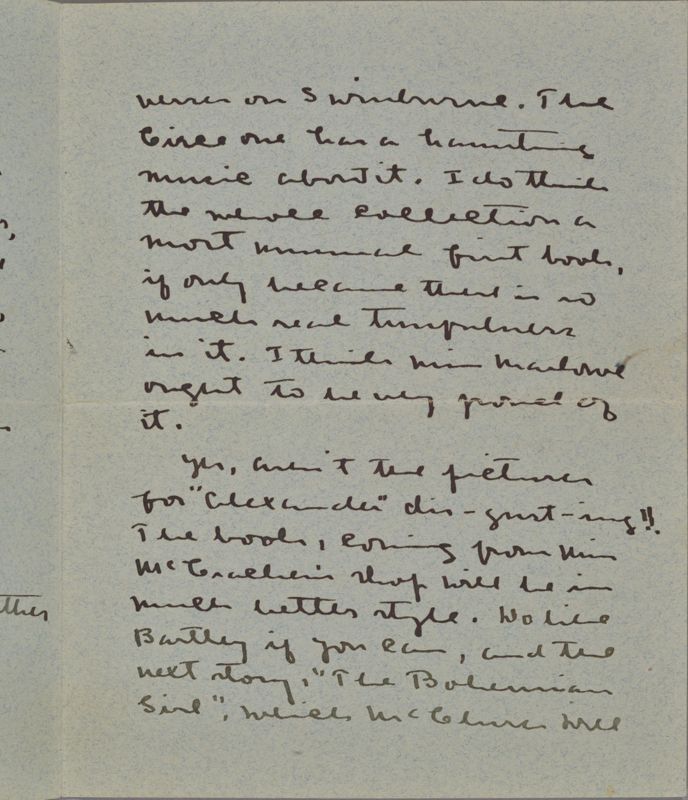 verses on Swinburne. The
Circe one has a haunting
music about it. I do think
the whole collection a
most unusual first book,
if only because there is so
much real tunefulness
in it. I think Miss Marlowe
ought to be very proud of
it.
Yes, aren't the pictures
for "Alexander" dis-gust-ing!!
The book, coming from Miss
McCracken's shop will be in
much better style. Do like
Bartley if you can, and the
next story, "The Bohemian
Girl", which McClures will